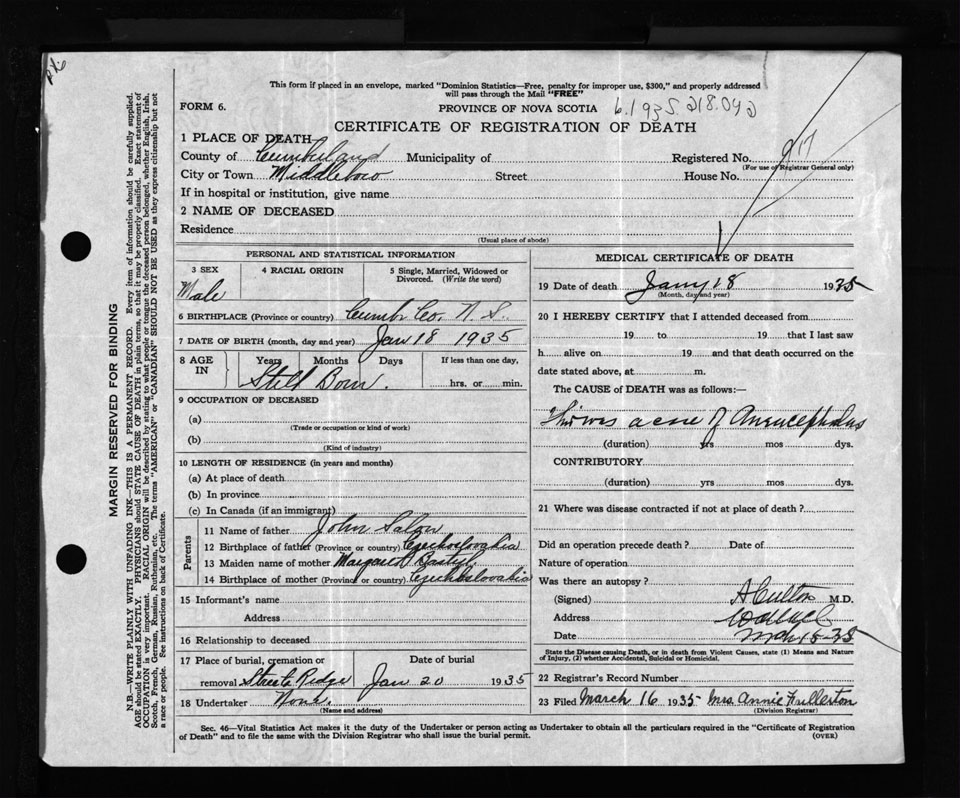 This form if placed in an envelope, marked "Dominion Statistics—Free, penalty for improper use, $300," and properly addressed
will pass through the Mail "FREE"
FORM 6.
PROVINCE OF NOVA SCOTIA
CERTIFICATE OF REGISTRATION OF DEATH
1 PLACE OF DEATH
County of Cumberland Municipality of Registered No.
(For use of Registrar General only)
City or Town Middleboro Street House No.
If in hospital or institution, give name
2 NAME OF DECEASED
Residence
(Usual place of abode)
PERSONAL AND STATISTICAL INFORMATION
3 SEX 4 RACIAL ORIGIN 5 Single, Married, Widowed or
Divorced. (Write the word)
Male
6 BIRTHPLACE (Province or country) Cumb. Co. N. S.
7 DATE OF BIRTH (month, day and year) Jan 18 1935
8 AGE IN Years Months Days If less than one day,
Still Born. hrs. or min.
9 OCCUPATION OF DECEASED
(a)
(Trade or occupation or kind of work)
(b)
(Kind of industry)
10 LENGTH OF RESIDENCE (in years and months)
(a) At place of death
(b) In province
(c) In Canada (if an immigrant)
Parents
11 Name of father John
12 Birthplace of father (Province or country) Czechoslovakia
13 Maiden name of mother Margaret
14 Birthplace of mother (Province or country) Czechoslovakia
15 Informant's name
Address
16 Relationship to deceased
17 Place of burial, cremation or Date of burial
removal Streets Ridge Jan 20 1935
18 Undertaker None.
(Name and address)
MEDICAL CERTIFICATE OF DEATH
19 Date of death Jany 18 1935
(Month, day and year)
20 I HEREBY CERTIFY that I attended deceased from
19 to 19 that I last saw
h alive on 19 and that death occurred on the
date stated above, at m.
The CAUSE of DEATH was as follows:—
This was a case of Anencephalus
(duration) yrs mos dys.
CONTRIBUTORY
(duration) yrs. mos dys.
21 Where was disease contracted if not at place of death?
Did an operation precede death? Date of
Nature of operation
Was there an autopsy?
(Signed) M.D.
Address Wallace
Date Mch 15-35
State the Disease causing Death, or in death from Violent Causes, state (1) Means and Nature
of Injury, (2) whether Accidental, Suicidal or Homicidal.
22 Registrar's Record Number
23 Filed March 16 1935 Mrs. Annie Fullerton
(Division Registrar)
Sec. 46—Vital Statistics Act makes it the duty of the Undertaker or person acting as Undertaker to obtain all the particulars required in the "Certificate of Registration
of Death" and to file the same with the Division Registrar who shall issue the burial permit.
(OVER)
MARGIN RESERVED FOR BINDING
N.B.—WRITE PLAINLY WITH UNFADING INK—THIS IS A PERMANENT RECORD. Every item of information should be carefully supplied.
AGE should be stated EXACTLY. PHYSICIANS should STATE CAUSE OF DEATH in plain terms, so that it may be properly classified. Exact statement of
OCCUPATION is very important. RACIAL ORIGIN will be described by stating to what people or tongue the deceased person belonged, whether English, Irish,
Scotch, French, German, Russian, Ruthenian, etc. The terms "AMERICAN" or "CANADIAN" SHOULD NOT BE USED as they express citizenship but not
a race or people. See instructions on back of Certificate.